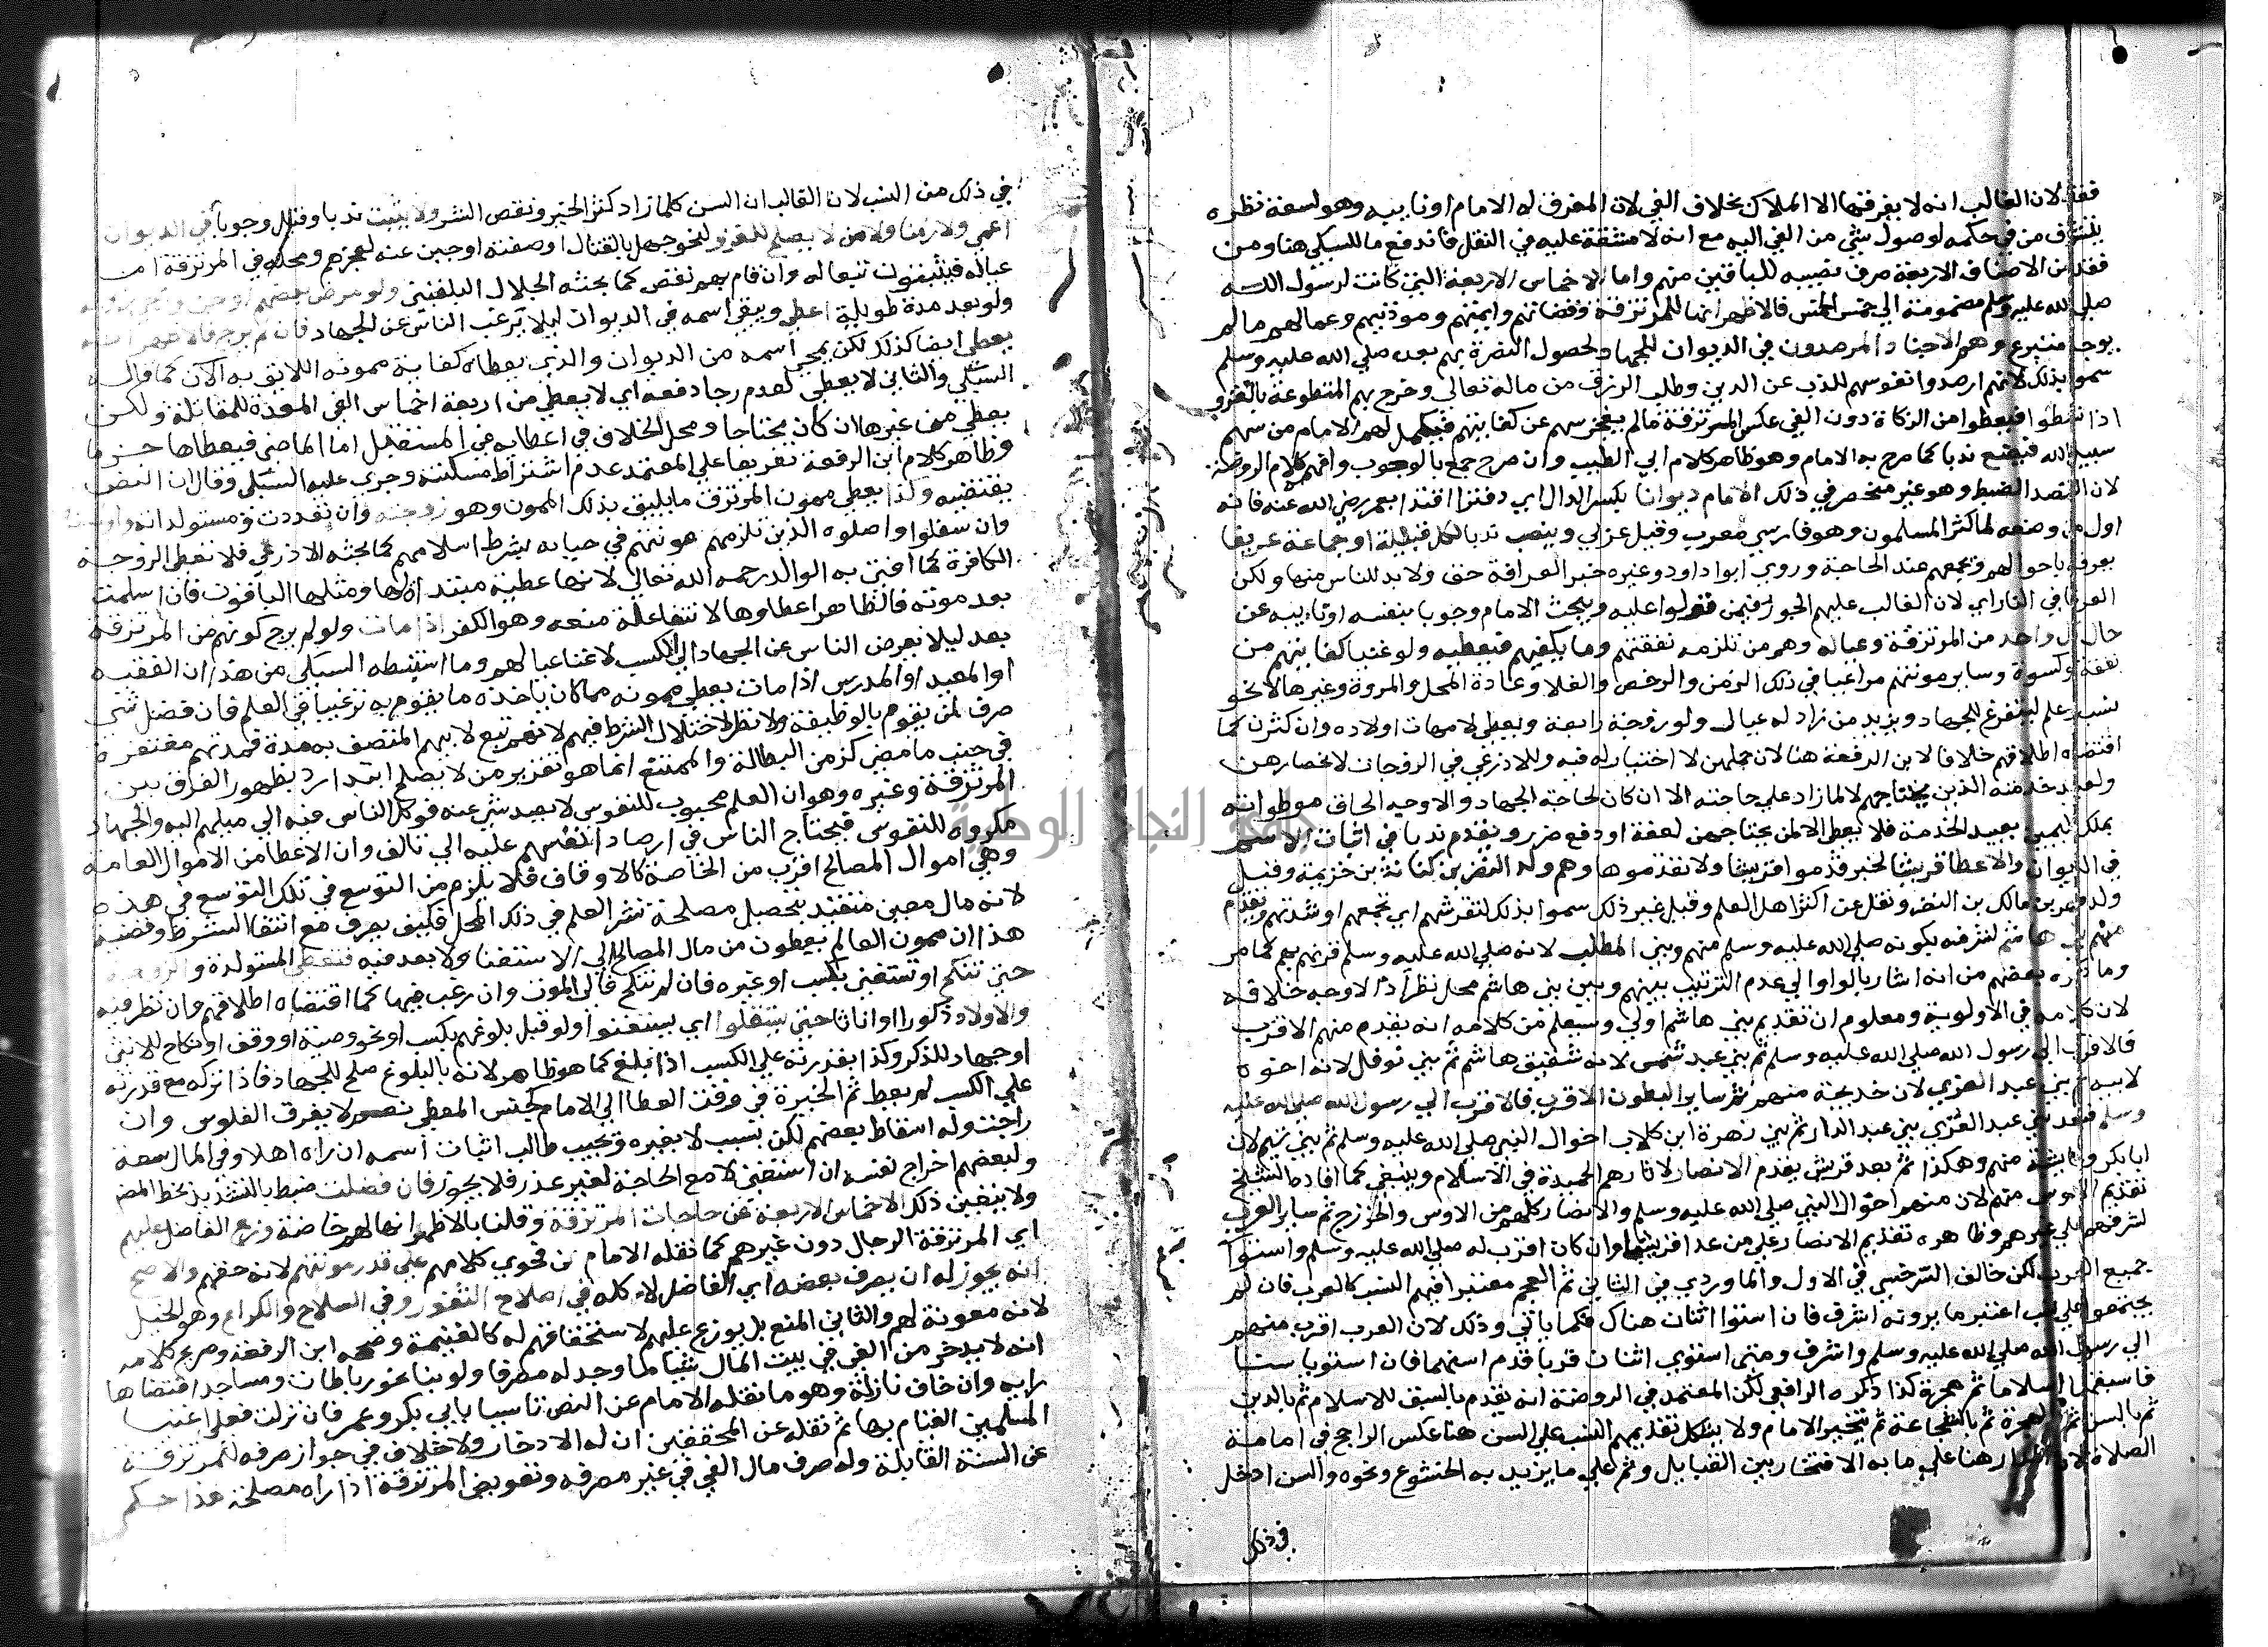 فقد لان الغالب انه لا يفرقها الا الملاك بخلاف الفي لان المفرق له الامام او نايبه وهو لسعة نظره
من في حكمه لوصول شي من الفي اليه مع انه لا مشقة عليه في النقل فاندفع ما للسبكي هنا ومن
فقد من الاصناف الاربعة صرف نصيبه للباقين منهم واما الاخماس الاربعة التي كانت لرسول الله
صلي الله عليه وسلم مضمومة الي خمس الخمس فالاظهر انها للمرتزقة وقضاتهم وايمتهم وموذنيهم وعمالهم ما لم
يوجد متبرع وهم الاجناد المرصدون في الديوان للجهاد لحصول النصرة بهم بعده صلي الله عليه وسلم
سموا بذلك لانهم ارصدوا نفوسهم للذب عن الدين وطلب الرزق من ماله تعالي وخرج بهم المتطوعة بالغزو
اذا نشطوا فيعطوا من الزكاة دون الفي عكس المرتزقة ما لم يعجز سهم عن كفايتهم فيكمل لهم الامام من سهم
سبيل الله فيضع ندبا كما صرح به الامام وهو ظاهر كلام ابي الطيب وان صرح جمع بالوجوب وافهمه كلام الروضة
لان القصد الضبط وهو غير منحصر في ذلك الامام ديوانا بكسر الدال اي دفترا اقتدا بعمر رضي الله عنه فانه
اول من وضعه لما كثر المسلمون وهو فارسي معرب وقيل عربي وينصب ندبا لكل قبيلة او جماعة عريفا
يعرفه باحوالهم ويجمعهم عند الحاجة وروي ابوا داود وغيره خبر العرافة حق ولا بد للناس منها ولكن
العرفا في النار اي لان الغالب عليهم الجور فيمن تولوا عليه ويبحث الامام وجوبا بنفسه او نايبه عن
حال كل واحد من المرتزقة وعياله وهم من تلزمه نفقتهم وما يكفيهم فيعطيه ولو غنيا كفايتهم من
نفقة وكسوة وساير مونتهم مراعيا في ذلك الزمن والرخص والغلا وعادة المحل والمروة وغيرها لا نحو
نسب وعلم ليتفرغ للجهاد ويزيد من زاد له عيال ولو زوجة رابعة ويعطي لامهات اولاده وان كثرن كما
اقتضاه اطلاقهم خلافا لابن الرفعة هنا لان حملهن لا اختيار له فيه وللاذرعي في الزوجات لانحصارهن
ولعبيد خدمته الذين يحتاجهم لا لما زاد علي حاجته الا ان كان لحاجة الجهاد والاوجه الحاق موطواته
بملك اليمين بعبيد الخدمة فلا يعطي الا لمن يحتاجهن لعفة او دفع ضرر ويقدم ندبا في اثبات الاسم
في الديوان والاعطا قريشا لخبر قدموا قريشا ولا تقدموها وهم ولد النضر بن كنانة بن خزيمة وقيل
ولد فهر بن مالك بن النضر ونقل عن اكثر اهل العلم وقيل غير ذلك سموا بذلك لتقرشهم اي تجمعهم او شدتهم ويقدم
منهم بني هاشم لشرفه بكونه صلي الله عليه وسلم منهم وبني المطلب لانه صلي الله عليه وسلم قرنهم بهم كما مر
وما ذكره بعضهم من انه اشار بالواو الي عدم الترتيب بينهم وبين بني هاشم محل نظر اذ الاوجه خلافه
لان كلامه في الاولوية ومعلوم ان تقديم بني هاشم اولي وسيعلم من كلامه انه يقدم منهم الاقرب
فالاقرب الي رسول الله صلي الله عليه وسلم ثم بني عبد شمس لانه شقيق هاشم ثم بني نوفل لانه اخوه
لابيه ثم بني عبد العزي لان خديجة منهم ثم ساير البطون الاقرب فالاقرب الي رسول الله صلي الله عليه
وسلم فبعد بني عبد العزي بني عبد الدار ثم بني زهرة ابن كلاب اخوال النبي صلي الله عليه وسلم ثم بني تيم لان
ابا بكر وعايشة منهم وهكذا ثم بعد قريش يقدم الانصار لاثارهم الحميدة في الاسلام وينبغي كما افاده الشيخ
تقديم الاوس منهم لان منهم اخوال النبي صلي الله عليه وسلم والانصار كلهم من الاوس والخزرج ثم ساير العرب
لشرفهم علي غيرهم وظاهره تقديم الانصار علي من عدا قريشا وان كان اقرب له صلي الله عليه وسلم واستوا
جميع العرب لكن خالف السرخسي في الاول والماوردي في الثاني ثم العجم معتبرا فيهم النسب كالعرب فان لم
يجتمعوا علي نسب اعتبر ما يرونه اشرف فان استوا اثنان هناك فكما ياتي وذلك لان العرب اقرب منهم
الي رسول الله صلي الله عليه وسلم واشرف ومتي استوي اثنان قربا قدم اسنهما فان استويا سنا
فاسبقهما اسلاما ثم هجرة كذا ذكره الرافعي لكن المعتمد في الروضة انه يقدم بالسبق للاسلام ثم بالدين
ثم بالسن ثم بالهجرة ثم بالشجاعة ثم يتخير الامام ولا يشكل تقديمهم النسب علي السن هنا عكس الراجح في امامة
الصلاة لان المدار هنا علي ما به الافتخار بين القبايل وثم علي ما يزيد به الخشوع ونحوه والسن ادخل
في ذلك
في ذلك من النسب لان الغالب ان السن كلما زاد كثر الخير ونقص الشر ولا يثبت ندبا وقيل وجوبا في الديوان
اعمي ولا زمنا ولا من لا يصلح للغزو لنحو جهل بالقتال او صفته او جبن عنه لعجزهم ومحله في المرتزقة اما
عياله فيثبتون تبعا له وان قام بهم نقص كما بحثه الجلال البلقيني ولو مرض بعضهم او جن ورجي زواله
ولو بعد مدة طويلة اعطي ويبقي اسمه في الديوان ليلا يرغب الناس عن الجهاد فان لم يرج فالاظهر انه
يعطي ايضا كذلك لكن يمحي اسمه من الديوان والذي يعطاه كفاية ممونه اللايق به الآن كما قاله
السبكي والثاني لا يعطي لعدم رجا دفعه اي لا يعطي من اربعة اخماس الفي المعدة للمقاتلة ولكن
يعطي من غيرها ان كان محتاجا ومحل الخلاف في اعطايه في المستقبل اما الماضي فيعطاها جزما
وظاهر كلام ابن الرفعة تفريعا علي المعتمد عدم اشتراط مسكنته وجري عليه السبكي وقال ان النص
يقتضيه وكذا يعطي ممون المرتزق ما يليق بذلك الممون وهو زوجته وان تعددت ومستولداته واولاده
وان سفلوا واصلوه الذين تلزمهم مونتهم في حياته بشرط اسلامهم كما بحثه الاذرعي فلا تعطي الزوجة
الكافرة كما افتي به الوالد رحمه الله تعالي لانها عطية مبتداة لها ومثلها الباقون فان اسلمت
بعد موته فالظاهر اعطاوها لانتفا علة منعه وهو الكفر اذا مات ولو لم يرج كونهم من المرتزقة
بعد ليلا يعرض الناس عن الجهاد الي الكسب لاغنا عيالهم وما استنبطه السبكي من هذا ان الفقيه
او المعيد او المدرس اذا مات يعطي ممونه مما كان ياخذه ما يقوم به ترغيبا في العلم فان فضل شي
صرف لمن يقوم بالوظيفة ولا نظر لاختلال الشرط فيهم لانهم تبع لابيهم المتصف به مدة فمدتهم مغتفرة
في جنب ما مضي كزمن البطالة والممتنع انما هو تقرير من لا يصلح ابتدا رد بظهور الفرق بين
المرتزقة وغيره وهو ان العلم محبوب للنفوس لا يصد شي عنه فوكل الناس فيه الي ميلهم اليه والجهاد
مكروه للنفوس فيحتاج الناس في ارصاد انفسهم عليه الي تالف وان الاعطا من الاموال العامة
وهي اموال المصالح اقرب من الخاصة كالاوقاف فلا يلزم من التوسع في تلك التوسع في هذه
لانه مال معين متقيد بتحصيل مصلحة نشر العلم في ذلك المحل فكيف يصرف مع انتفا الشرط وقضية
هذا ان ممون العالم يعطون من مال المصالح الي الاستغنا ولا بعد فيه فتعطي المستولدة والزوجة
حتي تنكح او تستغني بكسب او غيره فان لم تنكح فالي الموت وان رغب فيها كما اقتضاه اطلاقهم وان نظر فيه
والاولاد ذكورا او اناثا حتي يستقلوا اي يستغنوا ولو قبل بلوغهم بكسب او نحو وصية او وقف او نكاح للانثي
او جهاد للذكر وكذا بقدرته علي الكسب اذا بلغ كما هو ظاهر لانه بالبلوغ صلح للجهاد فاذا تركه مع قدرته
علي الكسب لم يعط ثم الخيرة في وقت العطا الي الامام كجنس المعطي نعم لا يفرق الفلوس وان
راجت وله اسقاط بعضهم لكن بسبب لا بغيره ويجيب طالب اثبات اسمه ان راه اهلا وفي المال سعة
ولبعضهم اخراج نفسه ان استغني لا مع الحاجة لغير عذر فلا يجوز فان فضلت ضبط بالتشديد بخط المص
ولا يتعين ذلك الاخماس الاربعة عن حاجات المرتزقة وقلنا بالاظهر انها لهم خاصة وزع الفاضل عليهم
اي المرتزقة الرجال دون غيرهم كما نقله الامام من فحوي كلامهم علي قدر مونتهم لانه حقهم والاصح
انه يجوز له ان يصرف بعضه اي الفاضل لا كله في اصلاح الثغور وفي السلاح والكراع وهو الخيل
لانه معونة لهم والثاني المنع بل يوزع عليهم لاستحقاقهم له كالغنيمة وضحه ابن الرفعة وصريح كلامه
انه لا يدخر من الفي في بيت المال شيا ما وجد له مصرفا ولو بنا نحو رباطات ومساجد اقتضاها
رايه وان خاف نازلة وهو ما نقله الامام عن النص تاسيا بابي بكر وعمر فان نزلت فعلي اغنيا
المسلمين القيام بها ثم نقل عن المحققين ان له الادخار ولا خلاف في جواز صرفه للمرتزقة
عن السنة القابلة وله صرف مال الفي في غير مصرفه وتعويض المرتزقة اذا راه مصلحة هذا حكم